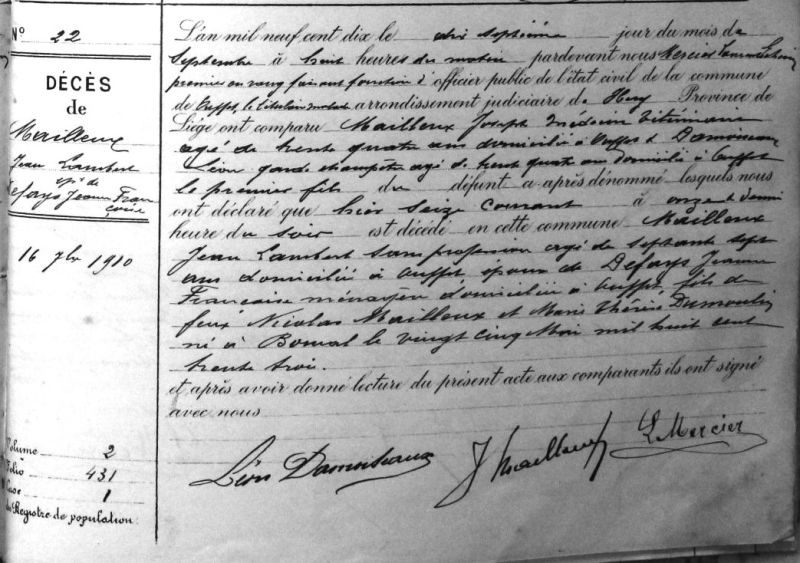 N° 22
DÉCÈS
de
Mailleux
Jean Lambert
épx de
Defays Jeanne Fran
çoise
16 7bre 1910
Volume 2
Folio 431
Case 1
du Registre de population.
L'an mil neuf cent dix le dix septième jour du mois de
Septembre à huit heures du matin pardevant nous Mercier
premier en rang faisant fonction d'officier public de l'état civil de la commune
de Ouffet, le titulaire arrondissement judiciaire de Huy Province de
Liége ont comparu Mailleux Joseph médecin vétérinaire
agé de trente quatre ans domicilié à Ouffet & Damoiseaux
Léon garde champêtre agé de trente quatre ans domicilié à Ouffet
le premier fils du défunt ci après dénommé lesquels nous
ont déclaré que hier seize courant à onze & demi
heure du soir est décédé en cette commune Mailleux
Jean Lambert sans profession agé de septante sept
ans domicilié à Ouffet époux de Defays Jeanne
Françoise ménagère domiciliée à Ouffet, fils de
feux Nicolas Mailleux et Marie Thérèse Dumoulin
né à Bomal le vingt cinq Mai mil huit cent
trente trois.
et après avoir donné lecture du présent acte aux comparants ils ont signé
avec nous
Léon Damoiseaux J Mailleux L Mercier